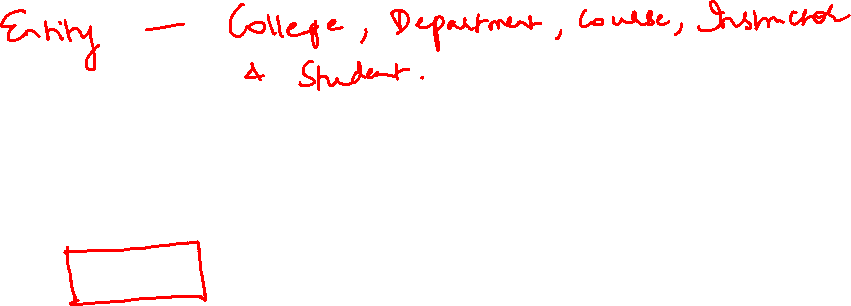 Entity — College, Department, Course, Instructor
& Student.